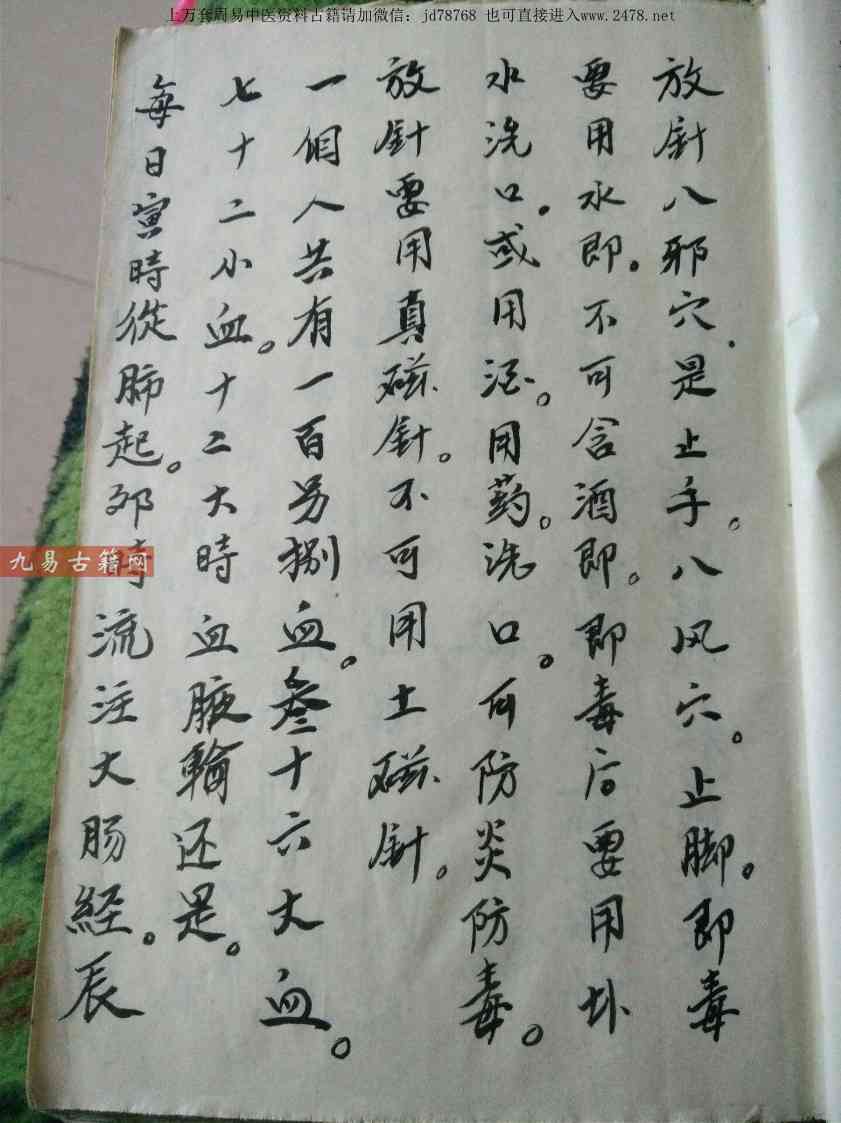 上万套周易中医资料古籍请加微信：jd78768 也可直接进入www.2478.net
放針八邪穴.是止手。八风穴。止脚。即毒
要用水即。不可含酒即。即毒后要用
水洗口。或用酒。用药。洗口。可防炎防毒。
放針要用真磁針。不可用土磁針。
一個人共有一百另捌血。叁十六大血。
七十二小血。十二大時血腋輸还是。
每日寅時從肺起。卯時流注大肠経。辰
九易古籍网